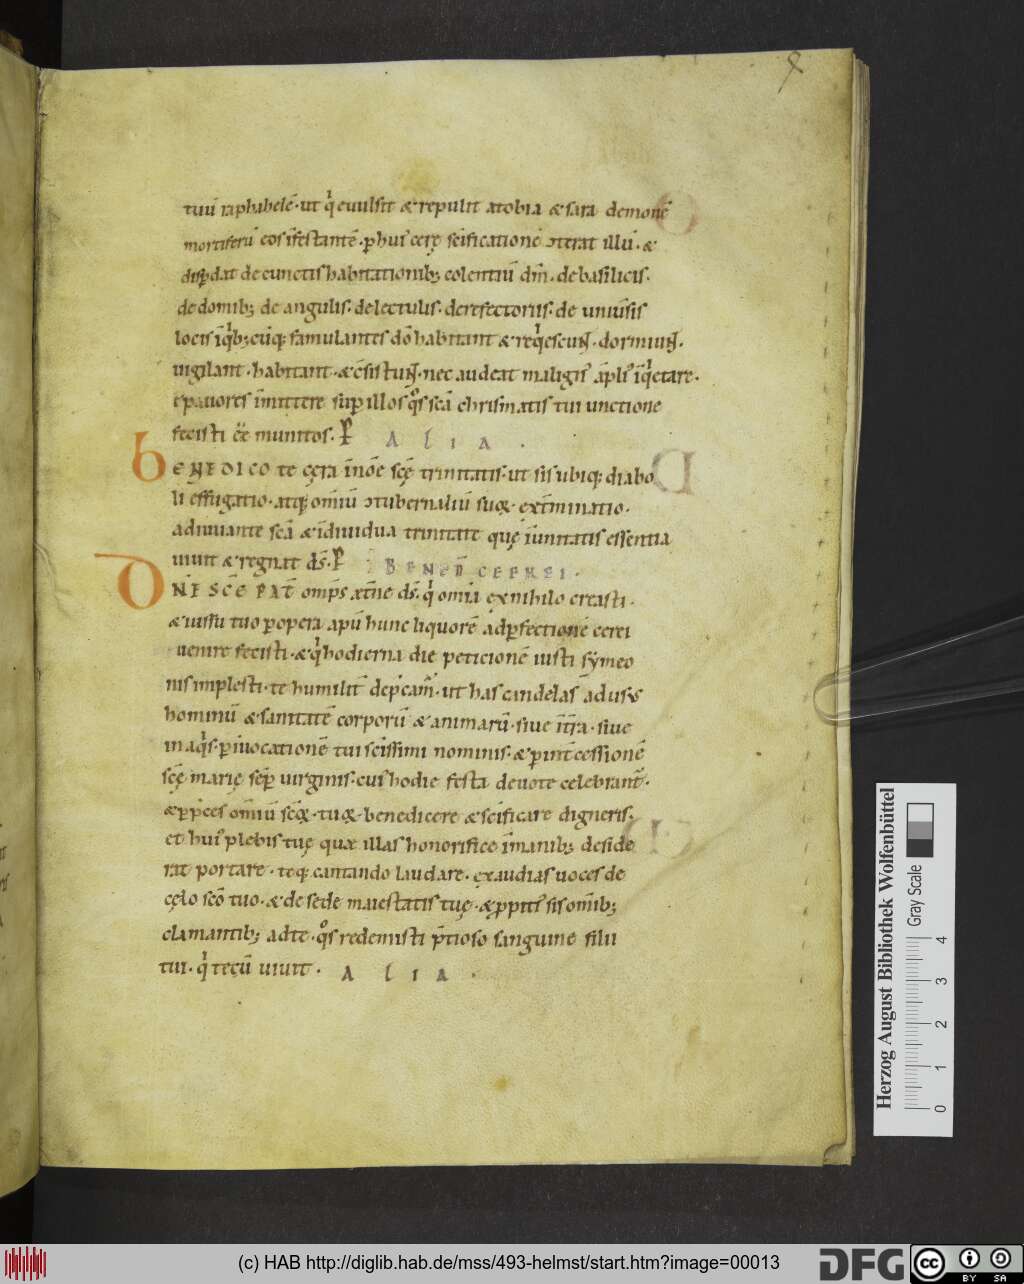 tuū raphahelē· ut q̍ euulsit & repulit atobia & sara demonē
mortiferū eos īfestantē· ꝑ huı᾽ cerę sc̄ificationē ɔterat illū· &
disꝑdat de cunctis habitationib; colentiū dm̄· de basilicis·
de domib; de angulis· de lectulis· de refectoriis· de uniūsis
locis īq̍b;cūq; famulantes dō habitant & req̍escunt· dormiunt·
uigilant· habitant· & c̄sistunt· nec audeat malignꝰ āpliꝰ īq̍etare·
l pauores īmittere suꝑ illos q̊s sc̄a chrismatis tui unctione
fecisti ēē munitos· P ALIA·
BENEDICO te cęra īnōe scę̄ trinitatis· ut sis ubiq; diabo
li effugatio· atq; om̄iū ɔtubernaliū suoꝝ ext̄minatio·
adiuuante sc̄a & īdiuidua trinitate quę īunitatis essentia
uiuit & regnat ds̄· P BENED CEREI·
DN̄E SC̄E PAT̄ omps̄ æt̄ne ds̄· q̍ om̄ia ex nihilo creasti·
& iussu tuo ꝑ opera apū hunc liquorē ad ꝑfectionē cerei
uenire fecisti· & q̍ hodierna die peticionē iusti symeo
nis implesti· te humilit̄ dep̄cam̄· ut has candelas ad usus
hominū & sanitatē corporū & animarū· siue īt̄ra· siue
in aq̍s· ꝑ inuocationē tui sc̄issimi nominis· & ꝑ int̄cessionē
scę̄ marię semꝑ uirginis· cuiꝰ hodie festa deuote celebrant̄·
& ꝑ p̄ces om̄iū sc̄oꝝ· tuoꝝ· benedicere & sc̄ificare digneris·
et huiꝰ plebis tuę quæ illas honorifice īmanib; deside
rat portare· teq; cantando laudare· exaudias uoces de
cęlo sc̄o tuo· & de sede maiestatis tuę· & ꝓpitiꝰ sis om̄ib;
clamantib; ad te· q̊s redemisti p̄tioso sanguine filii
tui· q̍ tecū uiuit· ALIA·
Herzog August Bibliothek Wolfenbüttel
Gray Scale
0 1 2 3 4
(c) HAB http://diglib.hab.de/mss/493-helmst/start.htm?image=00013
DFG
cc BY SA